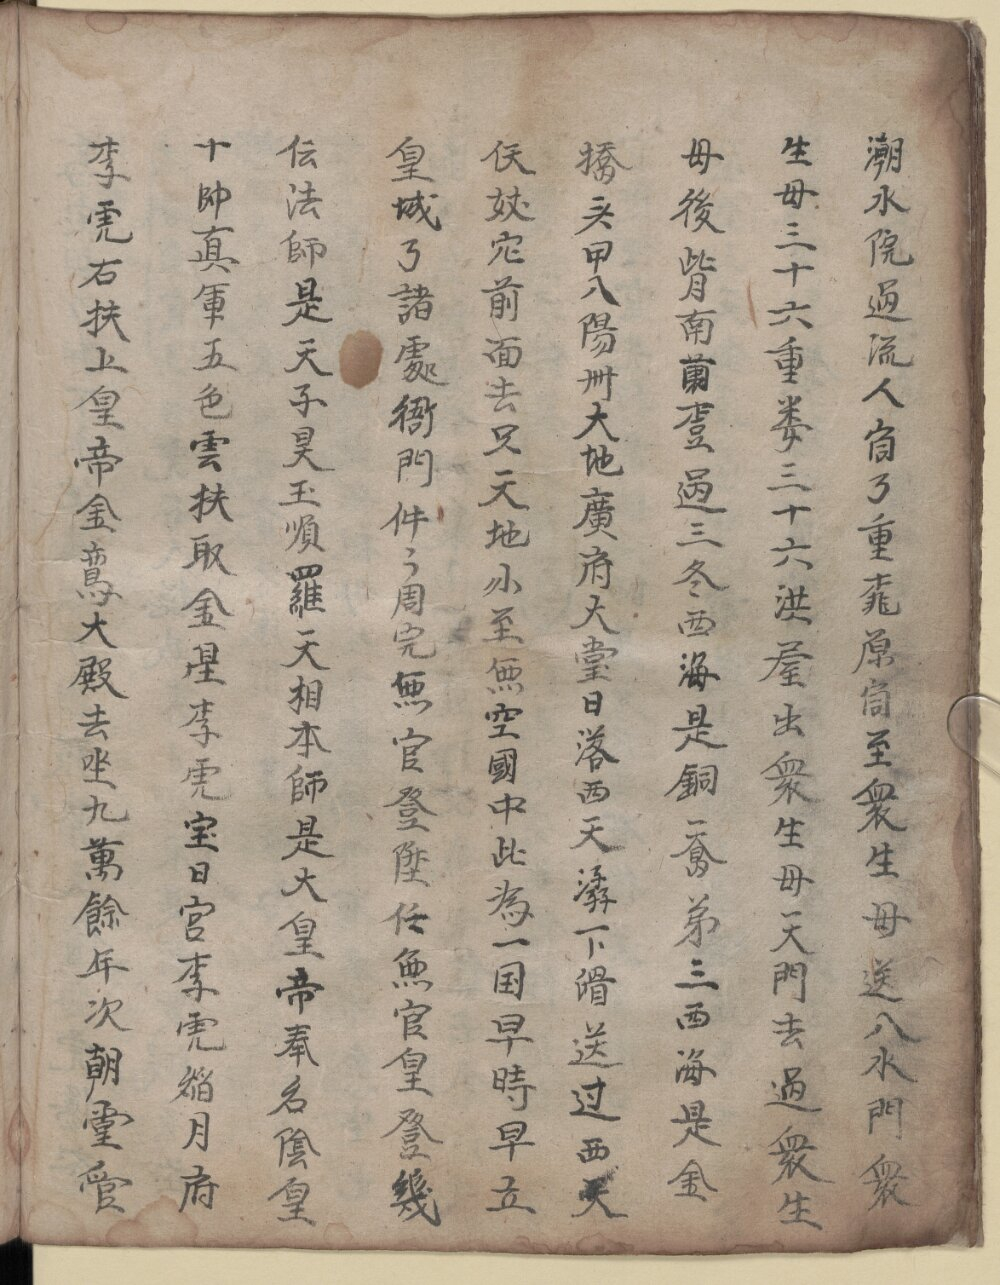 潮水院過流人宿了重竜原宿至衆生毋送八水門衆
生毋三十六重娄三十六洪屋出衆生毋天門去過衆生
毋後背南蕳壹過三冬西海是銅一奮弟三西海是金
橋头甲八陽卅大地廣府大堂日落西天潹下縎送过西天
伕妓它前面去兄一天地小至無空國中此為一国早時早立
皇城了諸處衙門件々周完無官登陞任無官皇登幾
伝法師是天子昊玉順羅天相本師是大皇帝奉名陰皇
十帥真軍五色雲扶取金星李虎宝日宮李虎㨨月府
李虎右扶上皇帝金鸞大殿去坐九萬餘年次朝靈管